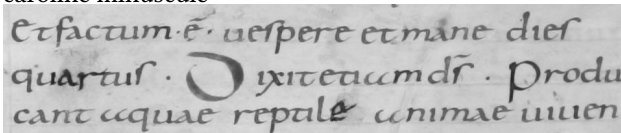 caroline minuscule
Et factum·ē· uespere et mane dies
quartus· Dixit etiam dſ̄· Produ
cant aquae reptile animae uiuen